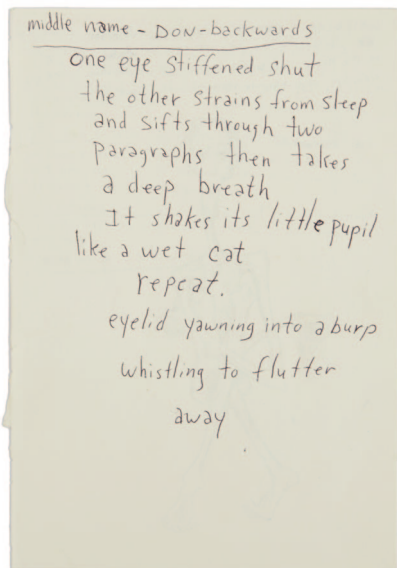 middle name - DON-backwards
one eye stiffened shut
the other strains from sleep
and sifts through two
paragraphs then takes
a deep breath
It shakes its little pupil
like a wet cat
repeat.
eyelid yawning into a burp
whistling to flutter
away